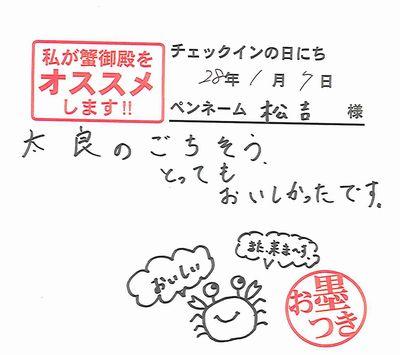 私が蟹御殿を
オススメ
します!!
チェックインの日にち
28年1月7日
ペンネーム 松吉 様
太良のごちそう、
とっても
おいしかったです。
おいしい
また、来ま〜す。
お墨
つき